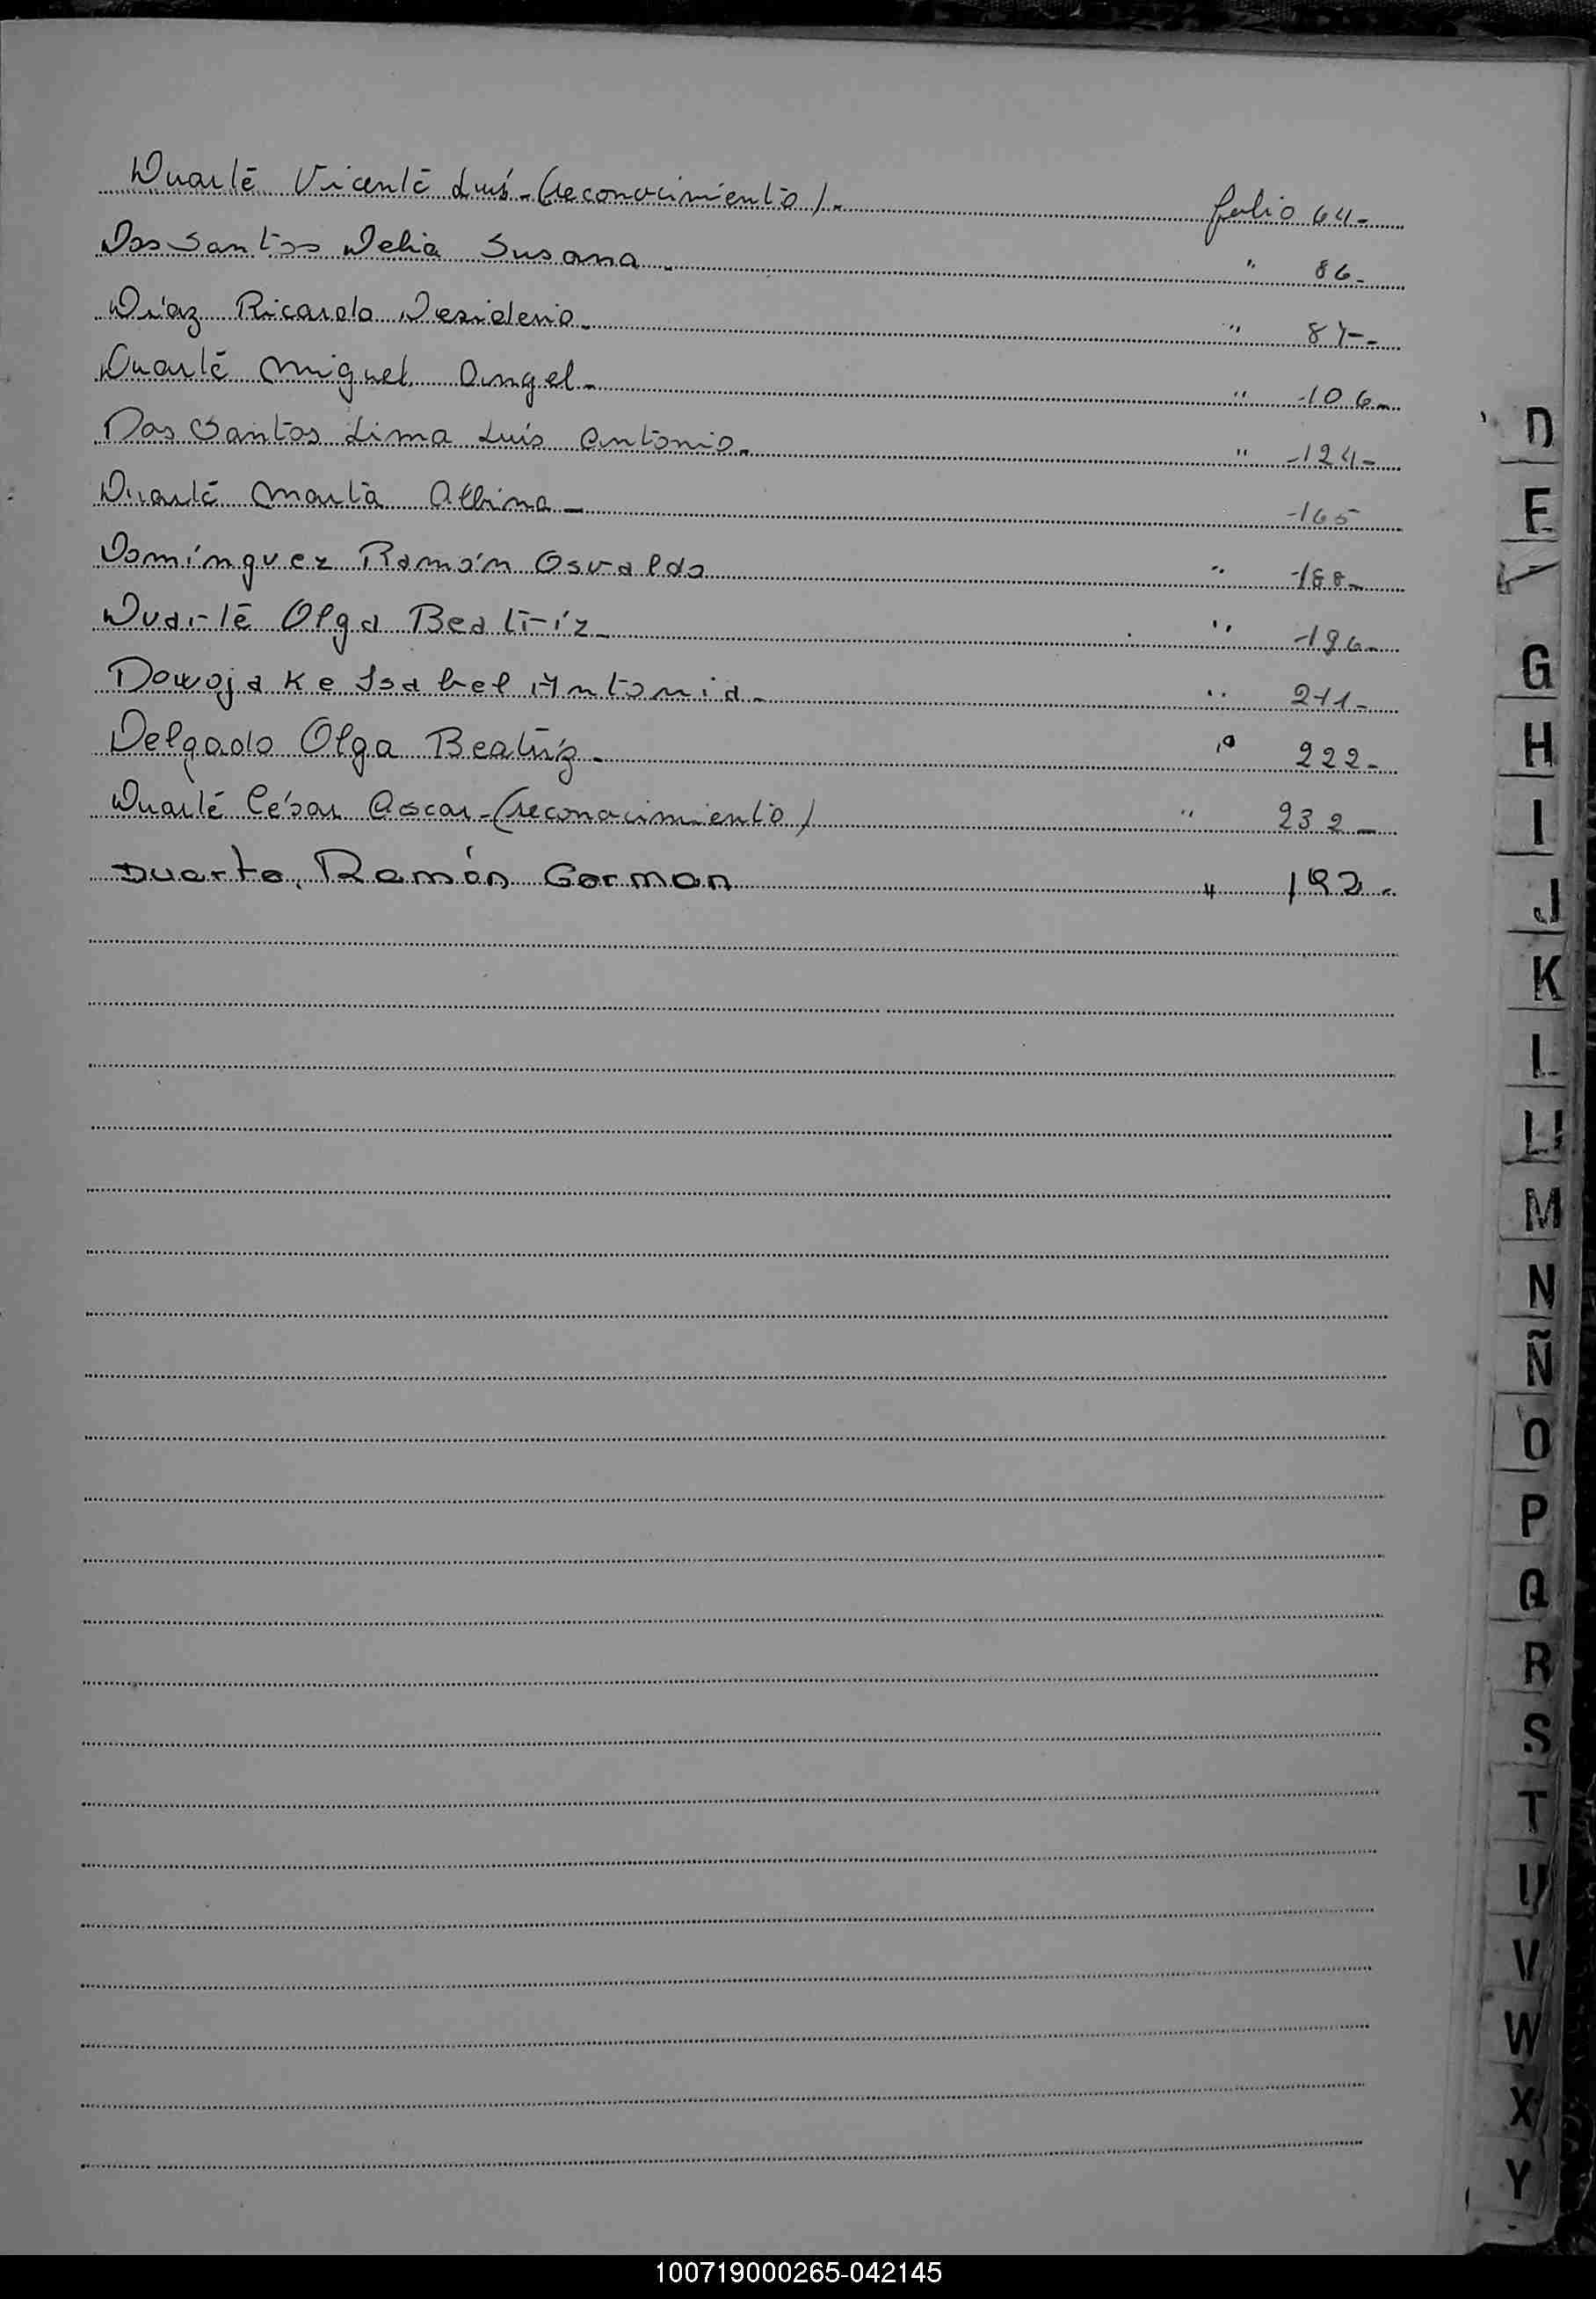 Duarte Vicente Luis-(reconocimiento).- folio 64-
Dos Santos Delia Susana.- " 86-
Díaz Ricardo Desiderio.- " 87-
Duarte Miguel Angel- " 106-
Dos Santos Lima Luis Antonio- " 124-
Duarte Marta Albina- 165
Domínguez Ramón Osvaldo " 188-
Duarte Olga Beatríz- " 196-
Isabel Antonia- " 211-
Delgado Olga Beatríz- " 222-
Duarte César Oscar-(reconocimiento) " 232-
Duarte, Ramón German " 192-
D
E
G
H
I
J
K
L
Ll
M
N
Ñ
O
P
Q
R
S
T
U
V
W
X
Y
100719000265-042145